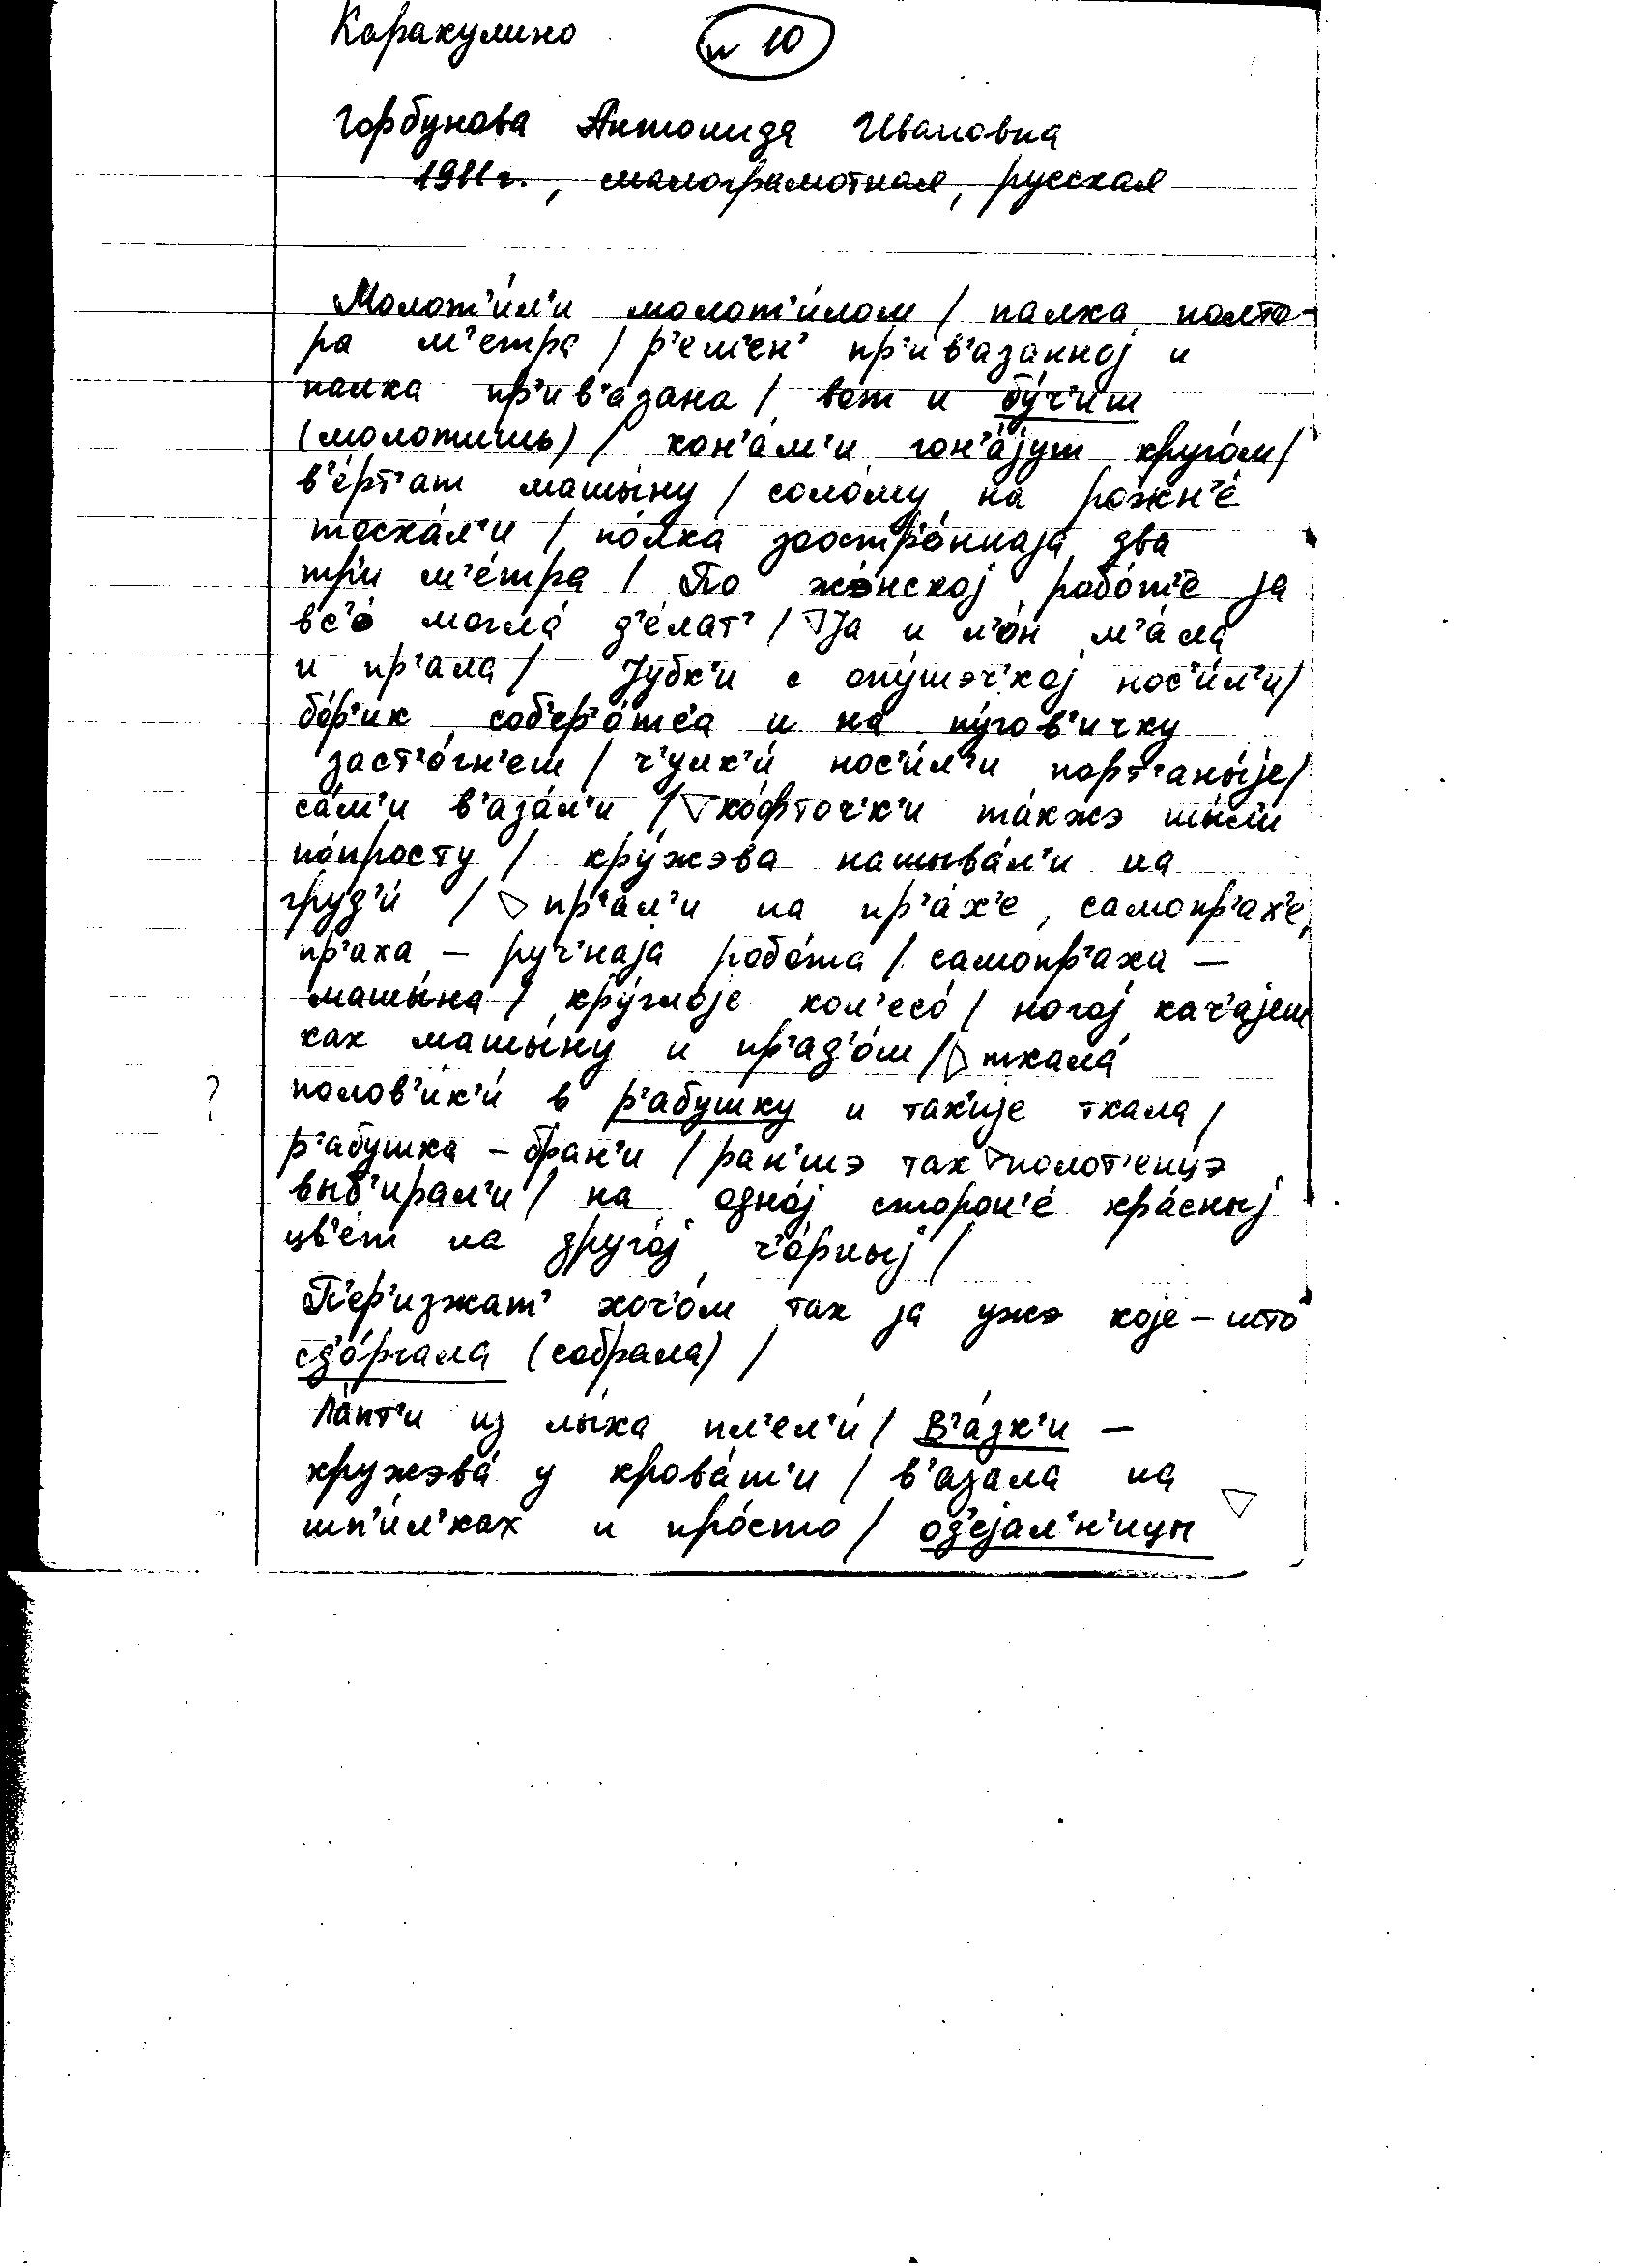 Каракулино № 10
Горбунова Антонида Ивановна
1911 г., малограмотная, русская
Молот'и́л'и молот'и́лом / палка полто-
ра м'етра / р'ем'ен' пр'ив'а́занној и
палка пр'ив'а́зана / вот и бу́ч'иш
(молотишь) / кон'а́м'и гон'а́јут круго́м /
в'е́рт'ат машы́ну / соло́му на рожн'е́
таска́л'и / па́лка заостр'о́ннаја два
три м'е́тра / По жо́нской рабо́т'е ја
вс'о́ могла́ д'е́лат' / Ја и л'он м'а́ла
и пр'ала / Јубк'и с опу́шэч'кој нос'и́л'и /
бо́р'ик собер'о́тса и на пу́гов'ичку
заст'о́гн'еш / ч'улк'и́ нос'и́л'и порт'аны́је /
са́м'и в'аза́л'и / ко́фточ'к'и та́кжэ шы́л'и
по́просту / кру́жэва нашыва́л'и на
груд'и́ / пр'а́л'и на пр'а́х'е, самопр'ах'е,
пр'аха – руч'наја рабо́та / самопр'аха –
машы́на / кру́глоје кол'есо́ / ногој кач'ајеш
как машы́ну и пр'ад'о́ш / ткала́
полов'ик'и́ в р'абушку и так'ије ткала /
р'абушка – бран'и / ран'шэ так полот'енцэ
выб'ирал'и / на одно́ј сторон'е́ кра́сныј
цв'е́т на друго́ј ч'о́рныј /
П'ер'изжат' хоч'о́м так ја ужэ које – што
сд'о́ргала (собрала) /
Ла́пт'и из лы́ка пл'ел'и́ / В'а́зк'и –
кружэва́ у крова́т'и / в'азала на
шп'и́л'ках и про́сто / од'ејал'н'ицы
?